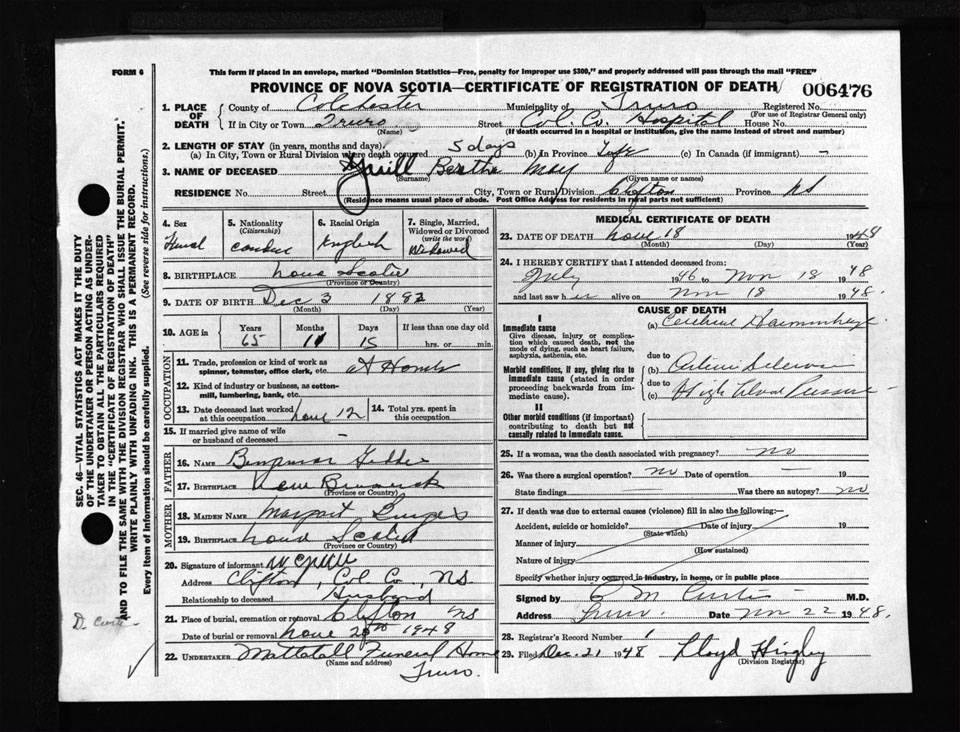 FORM 6
This form if placed in an envelope, marked "Dominion Statistics—Free, penalty for improper use $300," and properly addressed will pass through the mail "FREE"
PROVINCE OF NOVA SCOTIA—CERTIFICATE OF REGISTRATION OF DEATH 006476
1. PLACE OF DEATH
County of Colchester Municipality of Truro Registered No.
(For use of Registrar General only)
If in City or Town Truro Street Col. Co. Hospital House No.
(Name) (If death occurred in a hospital or institution, give the name instead of street and number)
2. LENGTH OF STAY (in years, months and days)
(a) In City, Town or Rural Division where death occurred 5 days (b) in Province Life (c) In Canada (if immigrant) —
3. NAME OF DECEASED Bertha May
(Surname) (Given name or names)
RESIDENCE No. Street City, Town or Rural Division Clifton Province NS
(Residence means usual place of abode. Post Office Address for residents in rural parts not sufficient)
4. Sex
5. Nationality (Citizenship)
6. Racial Origin English
7. Single, Married, Widowed or Divorced (write the word) Widowed
8. BIRTHPLACE Nova Scotia
(Province or Country)
9. DATE OF BIRTH Dec 3 1882
(Month) (Day) (Year)
10. AGE in Years Months Days If less than one day old
65 11 15 hrs. or min.
OCCUPATION
11. Trade, profession or kind of work as spinner, teamster, office clerk, etc. At Home
12. Kind of industry or business, as cotton-mill, lumbering, bank, etc.
13. Date deceased last worked at this occupation Nove 12
14. Total yrs. spent in this occupation
15. If married give name of wife or husband of deceased —
FATHER
16. NAME
17. BIRTHPLACE New Brunswick
(Province or Country)
MOTHER
18. MAIDEN NAME Margaret
19. BIRTHPLACE Nova Scotia
(Province or Country)
20. Signature of informant
Address Clifton, Col Co, NS
Relationship to deceased Husband
21. Place of burial, cremation or removal Clifton NS
Date of burial or removal Nove 20th 1948
22. UNDERTAKER Mattatall Funeral Home
(Name and address)
Truro.
MEDICAL CERTIFICATE OF DEATH
23. DATE OF DEATH Nove 18 1948
(Month) (Day) (Year)
24. I HEREBY CERTIFY that I attended deceased from:
July 1946 to Nov 18 1948
and last saw her alive on Nov 18 1948.
CAUSE OF DEATH
I
Immediate cause
Give disease, injury or complication which caused death, not the mode of dying, such as heart failure, asphyxia, asthenia, etc.
(a) Cerebral Haemorrhage
due to
Morbid conditions, if any, giving rise to immediate cause (stated in order proceeding backwards from immediate cause).
(b) Arterio Sclerosis
due to
(c) High Blood Pressure
II
Other morbid conditions (if important) contributing to death but not causally related to immediate cause.
25. If a woman, was the death associated with pregnancy? No
26. Was there a surgical operation? No Date of operation — 19
State findings Was there an autopsy? No
27. If death was due to external causes (violence) fill in also the following:—
Accident, suicide or homicide? Date of injury 19
(State which)
Manner of injury
(How sustained)
Nature of injury
Specify whether injury occurred in industry, in home, or in public place
Signed by M Curtis M.D.
Address Truro Date Nov 22 1948.
28. Registrar's Record Number 1
29. Filed Dec. 21 1948 Lloyd
(Division Registrar)
SEC. 46—VITAL STATISTICS ACT MAKES IT THE DUTY
OF THE UNDERTAKER OR PERSON ACTING AS UNDER-
TAKER TO OBTAIN ALL THE PARTICULARS REQUIRED
IN THE "CERTIFICATE OF REGISTRATION OF DEATH"
AND TO FILE THE SAME WITH THE DIVISION REGISTRAR WHO SHALL ISSUE THE BURIAL PERMIT.
WRITE PLAINLY WITH UNFADING INK. THIS IS A PERMANENT RECORD.
Every item of information should be carefully supplied. (See reverse side for instructions.)